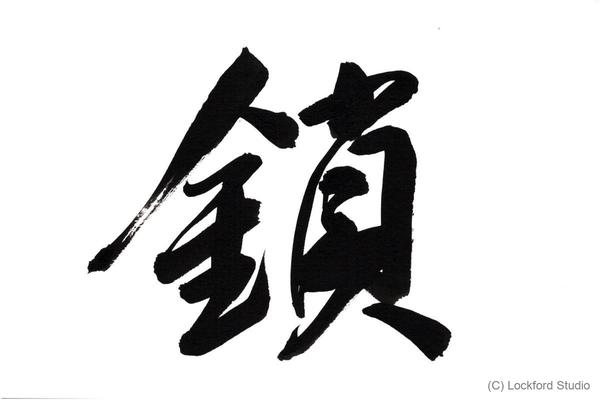 鎖
(C) Lockford Studio